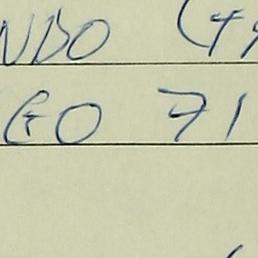 NDO (44
GO 71